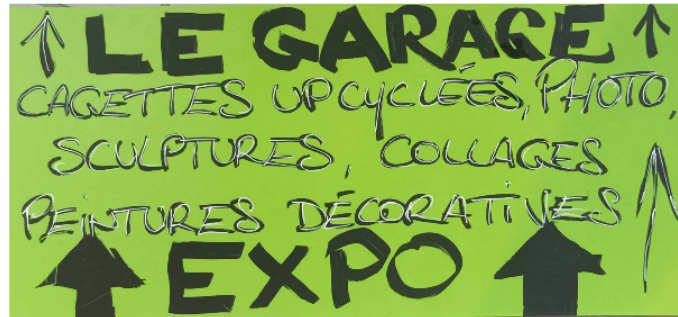 LE GARAGE
CAGETTES UPCYCLÉES, PHOTO,
SCULPTURES, COLLAGES
PEINTURES DÉCORATIVES
EXPO